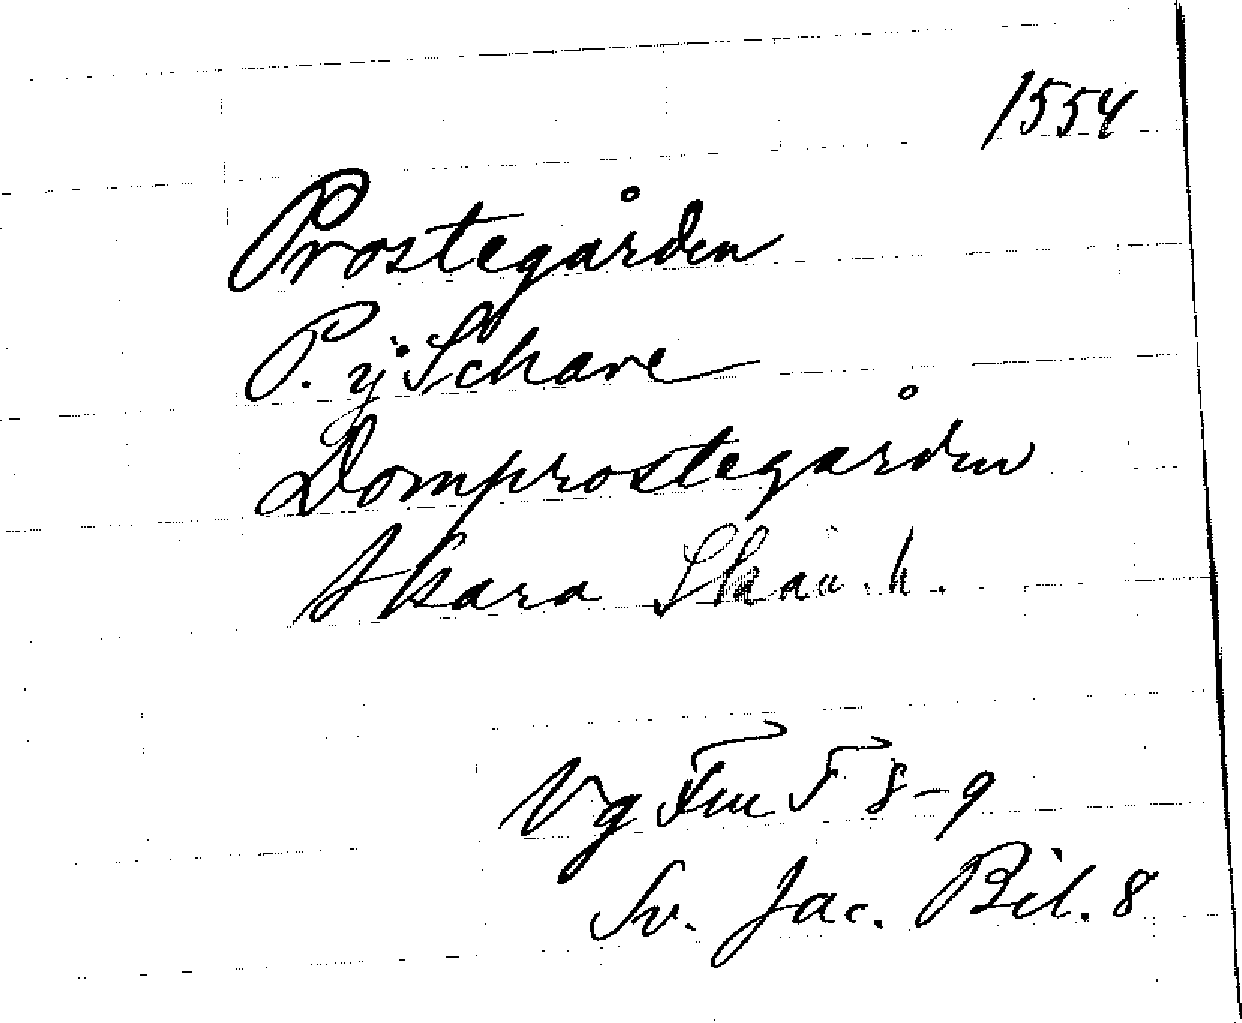 1554
Prostegården
P. ÿ Schare
Domprostegården
Skara Skån. h.
Vg Fm T 8-9
Sv. Jac. Bil. 8